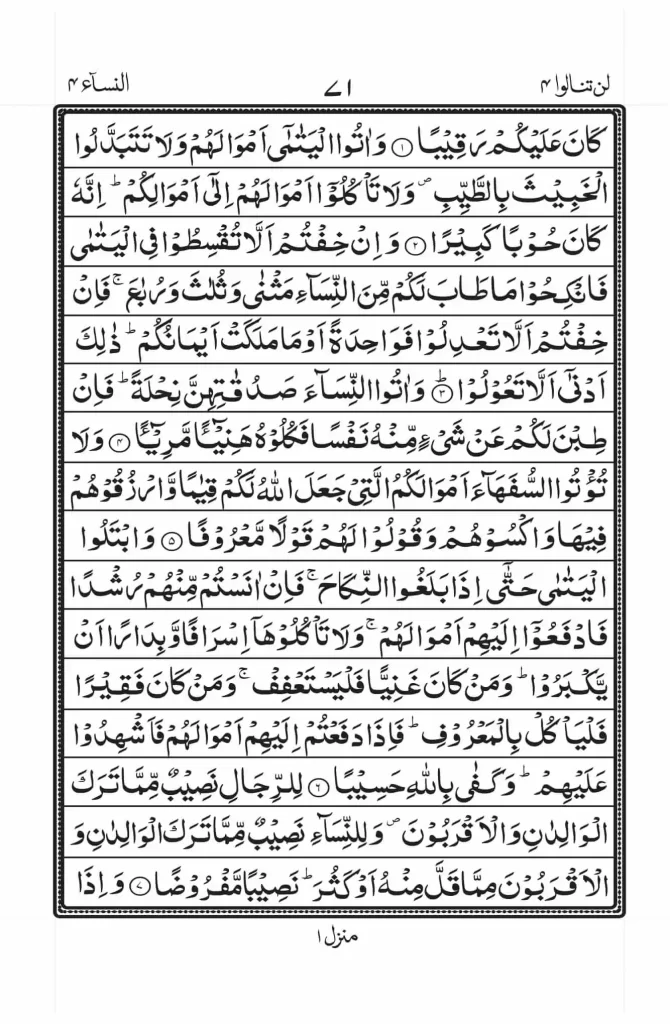 لن تنالوا ۴ ۷۱ النسآء ۴
كَانَ عَلَيْكُمْ رَقِيْبًا ۝۱ وَاٰتُوا الْيَتٰمٰٓى اَمْوَالَهُمْ وَلَا تَتَبَدَّلُوا
الْخَبِيْثَ بِالطَّيِّبِ ۪ وَلَا تَاْكُلُوْٓا اَمْوَالَهُمْ اِلٰٓى اَمْوَالِكُمْ ؕ اِنَّهٗ
كَانَ حُوْبًا كَبِيْرًا ۝۲ وَاِنْ خِفْتُمْ اَلَّا تُقْسِطُوْا فِى الْيَتٰمٰى
فَانْكِحُوْا مَا طَابَ لَكُمْ مِّنَ النِّسَآءِ مَثْنٰى وَثُلٰثَ وَرُبٰعَ ۚ فَاِنْ
خِفْتُمْ اَلَّا تَعْدِلُوْا فَوَاحِدَةً اَوْ مَا مَلَكَتْ اَيْمَانُكُمْ ؕ ذٰلِكَ
اَدْنٰٓى اَلَّا تَعُوْلُوْا ۝۳ؕ وَاٰتُوا النِّسَآءَ صَدُقٰتِهِنَّ نِحْلَةً ؕ فَاِنْ
طِبْنَ لَكُمْ عَنْ شَیْءٍ مِّنْهُ نَفْسًا فَكُلُوْهُ هَنِيْٓئًا مَّرِيْٓئًا ۝۴ وَلَا
تُؤْتُوا السُّفَهَآءَ اَمْوَالَكُمُ الَّتِیْ جَعَلَ اللّٰهُ لَكُمْ قِيٰمًا وَّارْزُقُوْهُمْ
فِيْهَا وَاكْسُوْهُمْ وَقُوْلُوْا لَهُمْ قَوْلًا مَّعْرُوْفًا ۝۵ وَابْتَلُوا
الْيَتٰمٰى حَتّٰٓى اِذَا بَلَغُوا النِّكَاحَ ۚ فَاِنْ اٰنَسْتُمْ مِّنْهُمْ رُشْدًا
فَادْفَعُوْٓا اِلَيْهِمْ اَمْوَالَهُمْ ۚ وَلَا تَاْكُلُوْهَآ اِسْرَافًا وَّبِدَارًا اَنْ
يَّكْبَرُوْا ؕ وَمَنْ كَانَ غَنِيًّا فَلْيَسْتَعْفِفْ ۚ وَمَنْ كَانَ فَقِيْرًا
فَلْيَاْكُلْ بِالْمَعْرُوْفِ ؕ فَاِذَا دَفَعْتُمْ اِلَيْهِمْ اَمْوَالَهُمْ فَاَشْهِدُوْا
عَلَيْهِمْ ؕ وَكَفٰى بِاللّٰهِ حَسِيْبًا ۝۶ لِلرِّجَالِ نَصِيْبٌ مِّمَّا تَرَكَ
الْوَالِدٰنِ وَالْاَقْرَبُوْنَ ۪ وَلِلنِّسَآءِ نَصِيْبٌ مِّمَّا تَرَكَ الْوَالِدٰنِ وَ
الْاَقْرَبُوْنَ مِمَّا قَلَّ مِنْهُ اَوْ كَثُرَ ؕ نَصِيْبًا مَّفْرُوْضًا ۝۷ وَاِذَا
منزل ۱